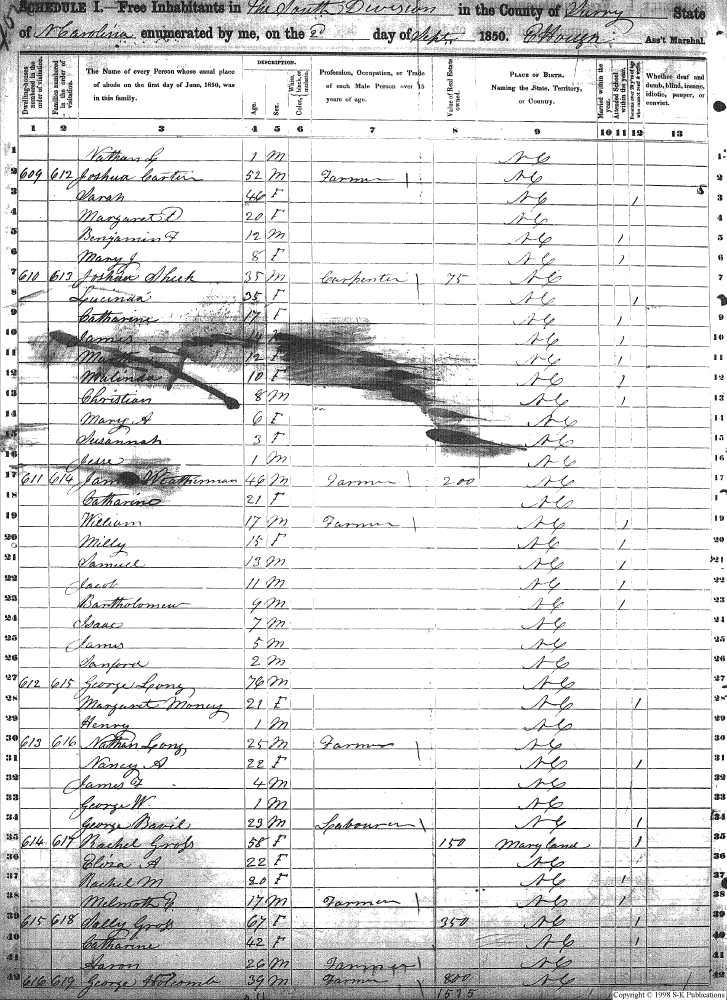 SCHEDULE I.—Free Inhabitants in The South Division in the County of Surry State
of N Carolina enumerated by me, on the 2d day of Sept. 1850. Ass't Marshal.
Dwelling-houses numbered in the order of visitation. Families numbered in the order of visitation. The Name of every Person whose usual place of abode on the first day of June, 1850, was in this family. DESCRIPTION. Age. Sex. Color, White, black, or mulatto. Profession, Occupation, or Trade of each Male Person over 15 years of age. Value of Real Estate owned. PLACE OF BIRTH. Naming the State, Territory, or Country. Married within the year. Attended School within the year. Whether deaf and dumb, blind, insane, idiotic, pauper, or convict.
1 2 3 4 5 6 7 8 9 10 11 12 13
1 Nathan L 1 M NC 1
2 609 612 Joshua Carter 52 M Farmer / NC 2
3 Sarah 46 F NC 1 3
4 Margaret 20 F NC 4
5 Benjamin F 12 M NC 1 5
6 Mary J 8 F NC 1 6
7 610 613 Joshua Sheek 35 M Carpenter / 75 NC 7
8 Lucinda 35 F NC 1 8
9 Catharine 17 F NC 1 9
10 James M NC 1 10
11 12 F NC 1 11
12 Malinda 10 F NC 1 12
13 Christian 8 M NC 1 13
14 Mary A 6 F NC 14
15 Susannah 3 F NC 15
16 Jesse 1 M NC 16
17 611 614 Weatherman 46 M Farmer / 200 NC 17
18 Catharine 21 F NC 18
19 William 17 M Farmer / NC 1 19
20 Milly 15 F NC 1 20
21 Samuel 13 M NC 1 21
22 Jacob 11 M NC 1 22
23 Bartholomew 9 M NC 1 23
24 Isaac 7 M NC 24
25 James 5 M NC 25
26 Sanford 2 M NC 26
27 612 615 George Long 76 M NC 27
28 Margaret Money 21 F NC 1 28
29 Henry 1 M NC 29
30 613 616 Nathan Long 25 M Farmer NC 30
31 Nancy A 22 F NC 1 31
32 James F 4 M NC 32
33 George W. 1 M NC 33
34 George 23 M Labourer / NC 1 34
35 614 617 Rachel Gross 58 F 150 Maryland 1 35
36 Eliza A 22 F NC 36
37 Rachel M 20 F NC 1 37
38 17 M Farmer / NC 1 38
39 615 618 Sally Gross 67 F 350 NC 1 39
40 Catharine 42 F NC 1 40
41 Aaron 26 M Farmer / NC 41
42 616 619 George Holcomb 39 M Farmer 800 NC 42
1575
Copyright © 1998 S-K Publications